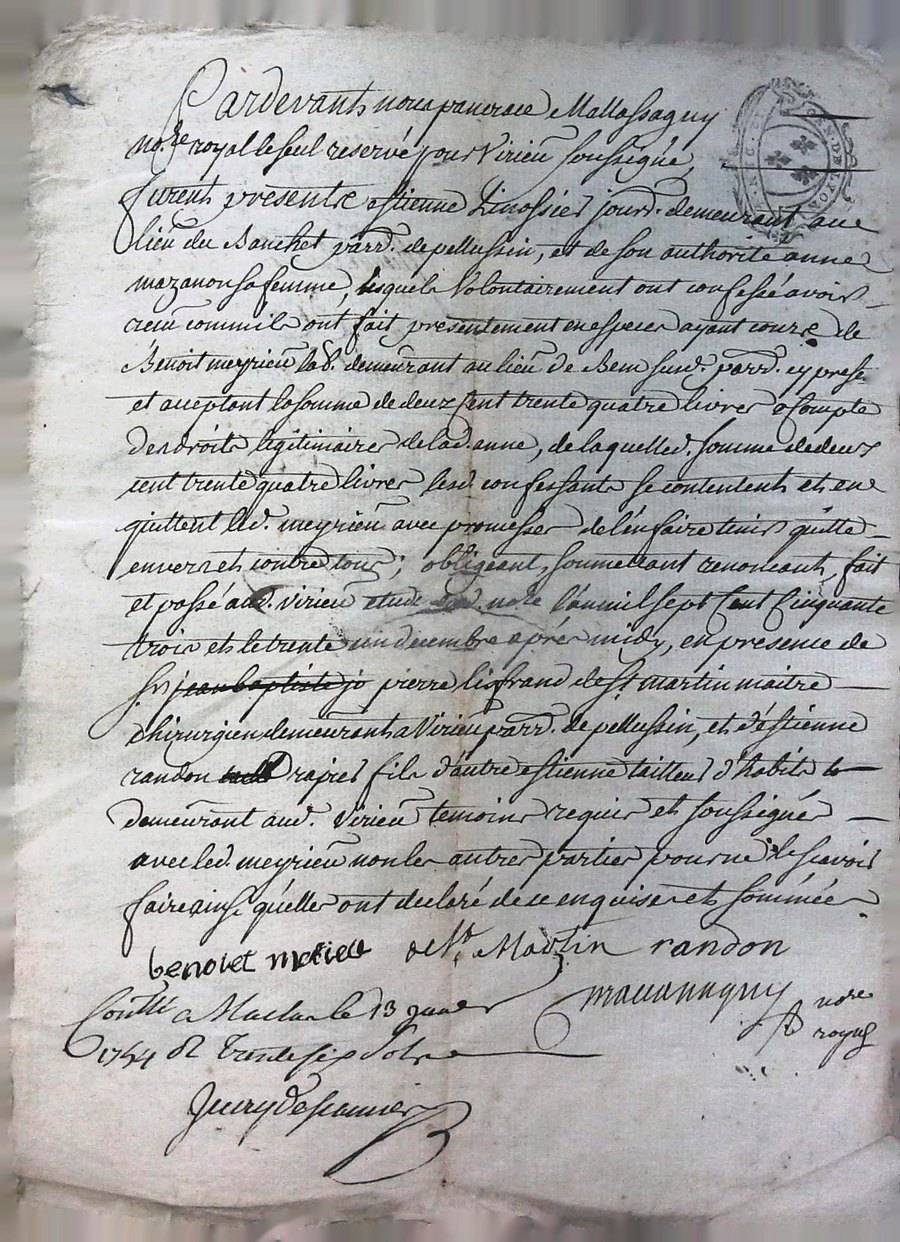 Pardevants nous pancrace Mallassagny
no.re royal le seul reservé pour Virieu soussigné,
furent présents estienne Linossier jour.d demeurant au
lieu du Banchet parr.e de pellussin, et de son authorité anne
mazanon sa femme, lesquels volontairement ont confessé avoir
receu comme ils ont fait présentement en especes ayant cours de
Benoit meyrieu lab.r demeurant au lieu de parr.e cy present
et acceptant la somme de deux cent trente quatre livres a compte
des droits légitimaires de lad. anne, de laquelle d. somme de deux
cent trente quatre livres lesd. confessants se contentent et en
quittent led. meyrieu avec promesses de l'en faire tenir quitte
envers et contre tous; obligeant, soumettant renonceant, fait
et passé aud. Virieu étude dud. no.re l'an mil sept cent cinquante
trois et le trente un decembre après midy, en presence de
s.r jean baptiste jo pierre lisfrand de s.t martin maitre
chirurgien demeurant a Virieu parr.e de pellussin, et d'éstienne
randon fils d'autre estienne tailleur d'habits
demeurant aud. Virieu temoins requis et soussignés
avec led. meyrieu non les autres parties pour ne le scavoir
faire ainsy qu'elles ont declaré de ce enquises et sommées
benoiet de St. Martin randon
Contté a Maclas le 13 janvier
mallassagny no.re royal
1754 Rt Trente six sols